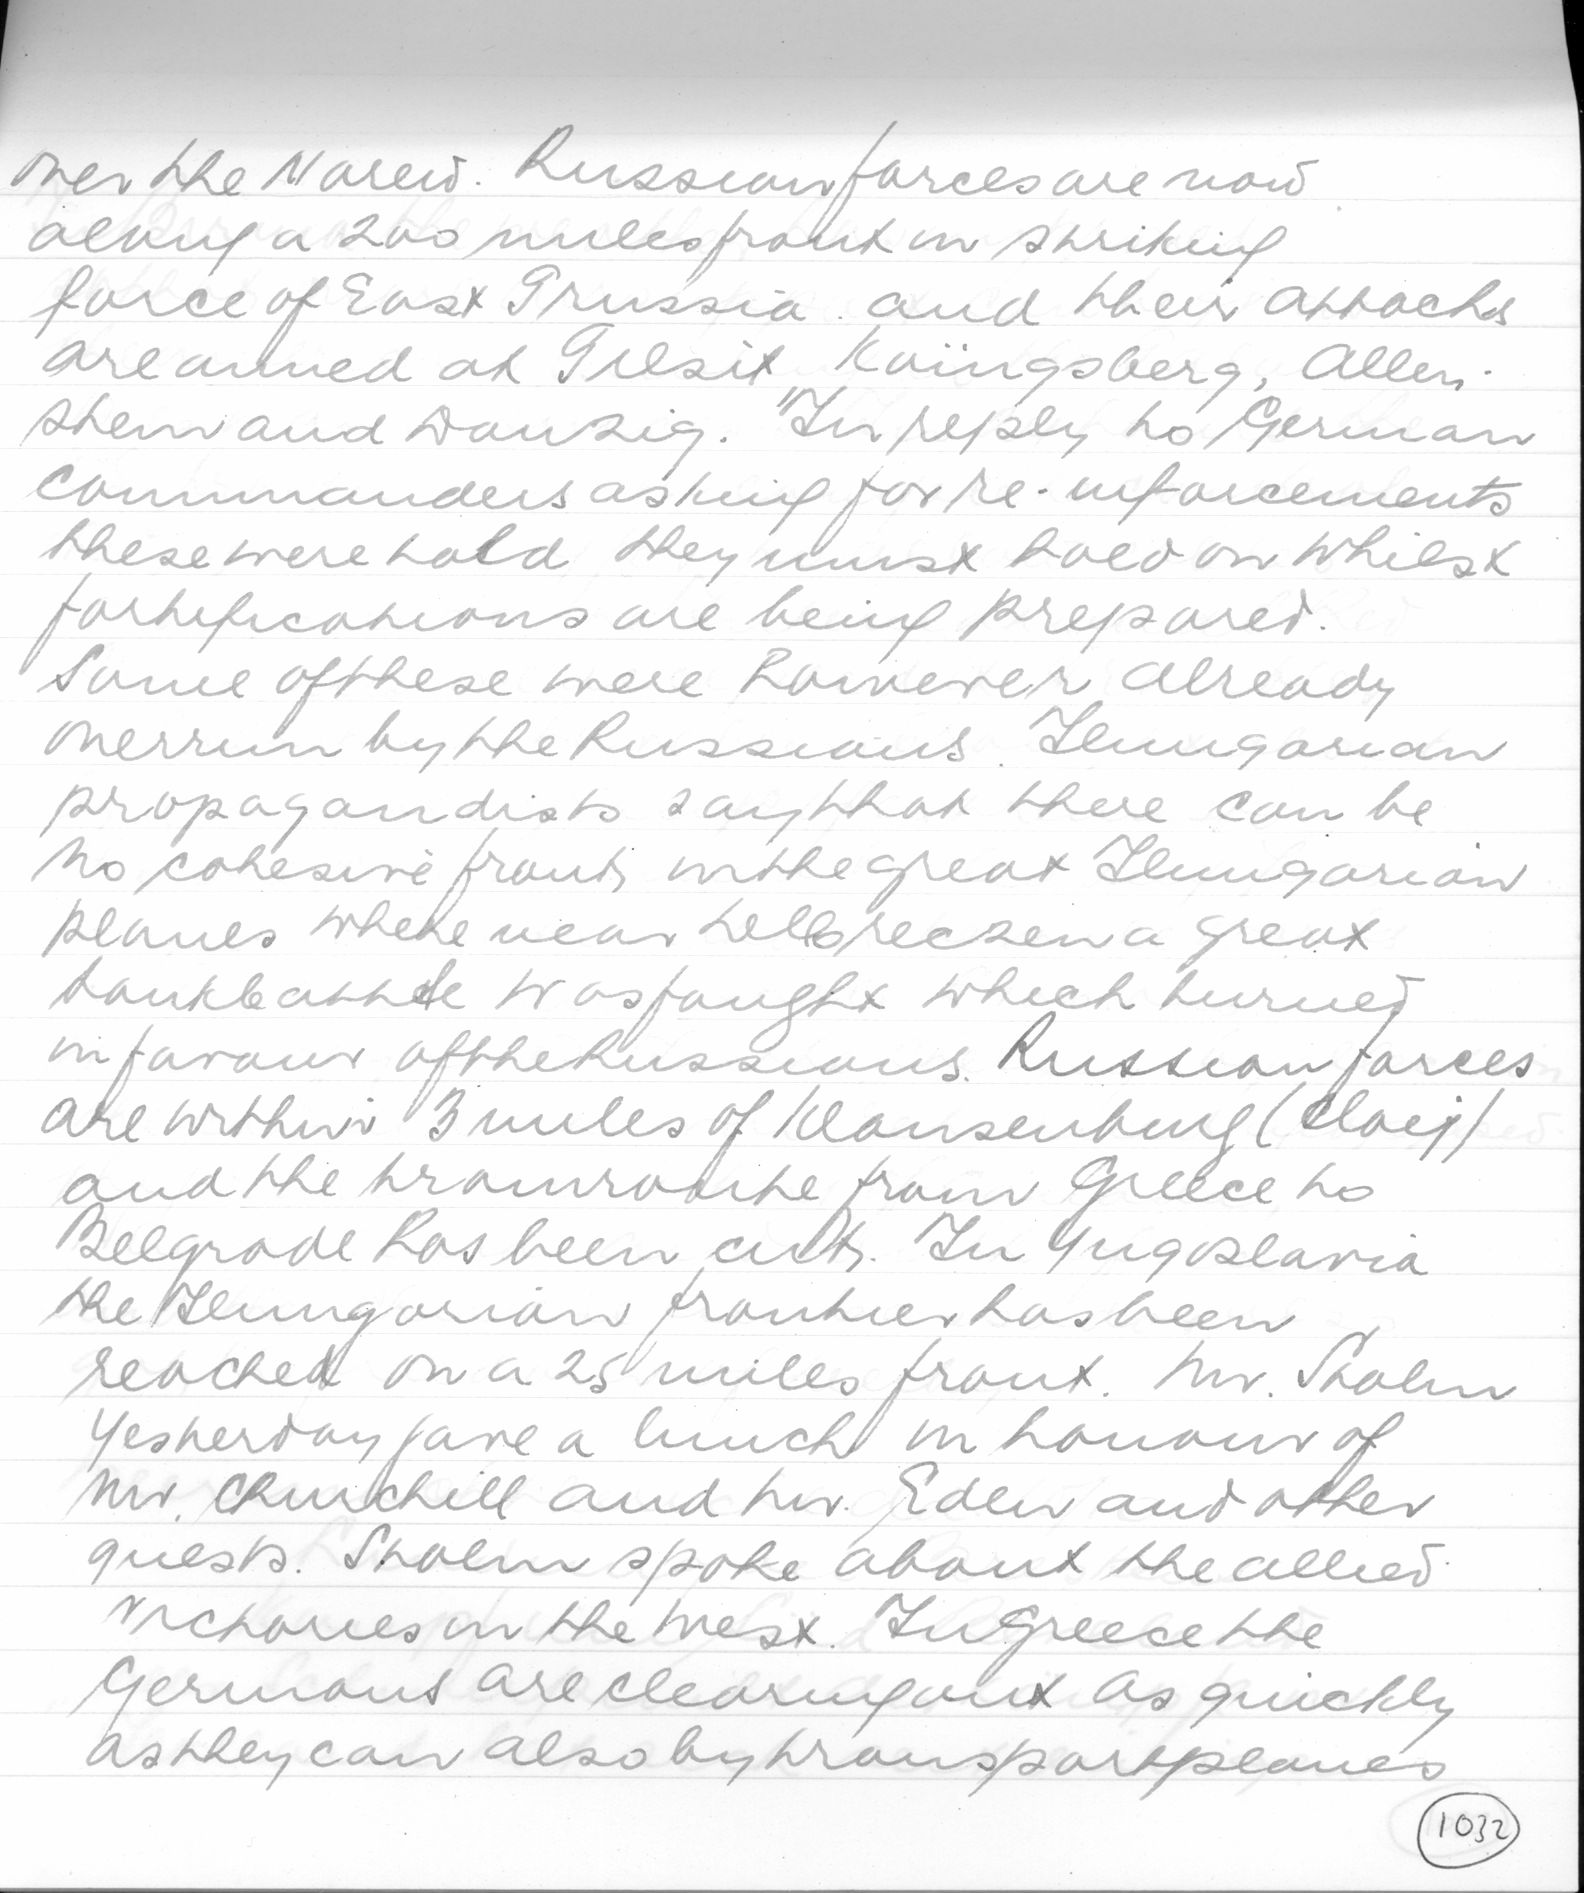 over the Narew. Russian forces are now
along a 200 miles front in striking
force of East Prussia. and their attacks
are aimed at Tilsit, Köingsberg, Allen-
stein and Danzig. "In reply to German
commanders asking for re-inforcements
these were told they must hold on whilst
fortifications are being prepared.
Some of these were however already
overrun by the Russians. Hungarian
propagandists say that there can be
no cohesive front in the great Hungarian
planes where near Debreczen a great
tankbattle was fought which turned
in favour of the Russians. Russian forces
are within 3 miles of Klausenburg (Cluij)
and the tramroute from Greece to
Belgrade has been cut. In Yugoslavia
the Hungarian frontier has been
reached on a 25 miles front. Mr. Stalin
yesterday gave a lunch in honour of
Mr. Churchill and Mr. Eden and other
guests. Stalin spoke about the allied
victories in the West. In Greece the
Germans are clearing out as quickly
as they can also by transportplanes
1032